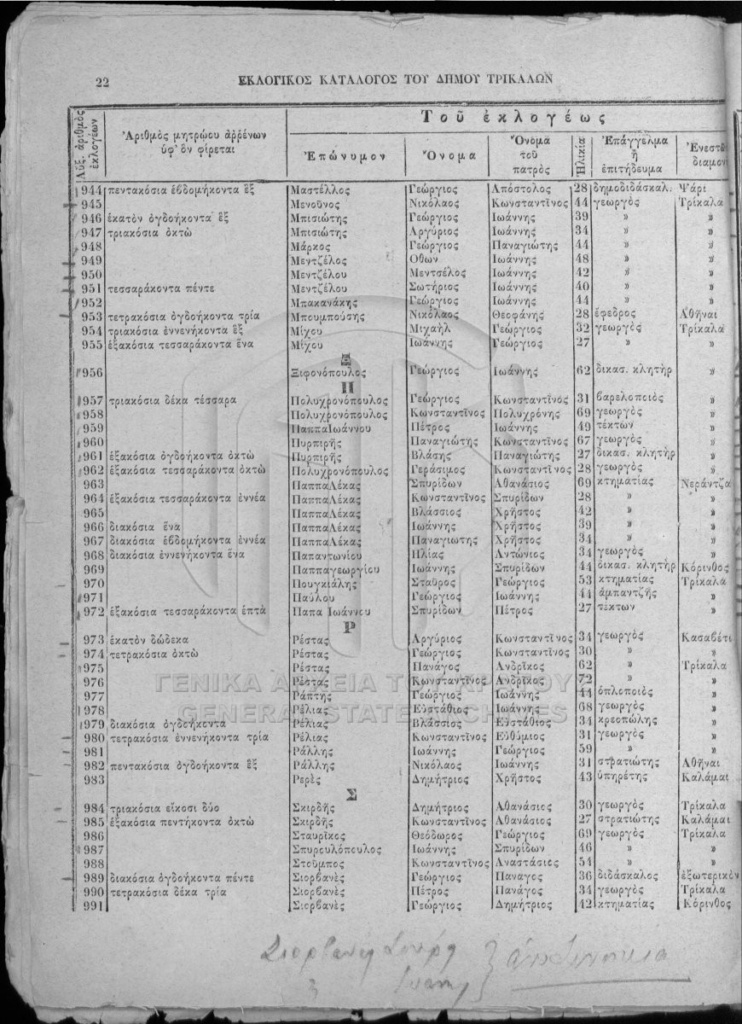 22 ΕΚΛΟΓΙΚΟΣ ΚΑΤΑΛΟΓΟΣ ΤΟΥ ΔΗΜΟΥ ΤΡΙΚΑΛΩΝ
Αὔξ. ἀριθμὸς ἐκλογέων
Ἀριθμὸς μητρῴου ἀρρένων ὑφ' ὃν φέρεται
Τοῦ ἐκλογέως
Ἐπώνυμον Ὄνομα Ὄνομα τοῦ πατρὸς Ἡλικία Ἐπάγγελμα ἢ ἐπιτήδευμα
944 πεντακόσια ἑβδομήκοντα ἓξ Μαστέλλος Γεώργιος Ἀπόστολος 28 δημοδιδάσκαλ. Ψάρι
945 Μενοῦνος Νικόλαος Κωνσταντῖνος 44 γεωργὸς Τρίκαλα
946 ἑκατὸν ὀγδοήκοντα ἓξ Μπισιώτης Γεώργιος Ἰωάννης 39 » »
947 τριακόσια ὀκτὼ Μπισιώτης Ἀργύριος Ἰωάννης 34 » »
948 Μάρκος Γεώργιος Παναγιώτης 44 » »
949 Μεντζέλος Ὄθων Ἰωάννης 48 » »
950 Μεντζέλου Μεντσέλος Ἰωάννης 42 » »
951 τεσσαράκοντα πέντε Μεντζέλου Σωτήριος Ἰωάννης 40 » »
952 Μπακανάκης Γεώργιος Ἰωάννης 44 » »
953 τετρακόσια ὀγδοήκοντα τρία Μπουμπούσης Νικόλαος Θεοφάνης 28 ἔφεδρος Ἀθῆναι
954 τριακόσια ἐννενήκοντα ἓξ Μίχου Μιχαὴλ Γεώργιος 32 γεωργὸς Τρίκαλα
955 ἑξακόσια τεσσαράκοντα ἕνα Μίχου Ἰωάννης Γεώργιος 27 » »
Ξ
956 Ξιφονόπουλος Γεώργιος Ἰωάννης 62 δικασ. κλητὴρ »
Π
957 τριακόσια δέκα τέσσαρα Πολυχρονόπουλος Γεώργιος Κωνσταντῖνος 31 βαρελοποιὸς »
958 Πολυχρονόπουλος Κωνσταντῖνος Πολυχρόνης 69 γεωργὸς »
959 ΠαππαἸωάννου Πέτρος Ἰωάννης 49 τέκτων »
960 Πυρπιρῆς Παναγιώτης Κωνσταντῖνος 67 γεωργὸς »
961 ἑξακόσια ὀγδοήκοντα ὀκτὼ Πυρπιρῆς Βλάσης Παναγιώτης 27 δικασ. κλητὴρ »
962 ἑξακόσια τεσσαράκοντα ὀκτὼ Πολυχρονόπουλος Γεράσιμος Κωνσταντῖνος 28 γεωργὸς »
963 ΠαππαΛέκας Σπυρίδων Ἀθανάσιος 69 κτηματίας Νεράντζα
964 ἑξακόσια τεσσαράκοντα ἐννέα ΠαππαΛέκας Κωνσταντῖνος Σπυρίδων 28 » »
965 ΠαππαΛέκας Βλάσσιος Χρῆστος 42 » »
966 διακόσια ἕνα ΠαππαΛέκας Ἰωάννης Χρῆστος 39 » »
967 διακόσια ἑβδομήκοντα ἐννέα ΠαππαΛέκας Παναγιωτης Χρῆστος 34 » »
968 διακόσια ἐννενήκοντα ἕνα Παπαντωνίου Ἠλίας Ἀντώνιος 34 γεωργὸς »
969 Παππαγεωργίου Ἰωάννης Σπυρίδων 44 δικασ. κλητὴρ Κόρινθος
970 Πουγκιάλης Σταῦρος Γεώργιος 53 κτηματίας Τρίκαλα
971 Παύλου Γεώργιος Ἰωάννης 44 ἀμπαντζῆς »
972 ἑξακόσια τεσσαράκοντα ἑπτὰ Παπα Ἰωάννου Σπυρίδων Πέτρος 27 τέκτων »
Ρ
973 ἑκατὸν δώδεκα Ρέστας Ἀργύριος Κωνσταντῖνος 34 γεωργὸς Κασαβέτι
974 τετρακόσια ὀκτὼ Ρέστας Γεώργιος Κωνσταντῖνος 30 » »
975 Ρέστας Πανάγος Ἀνδρῖκος 62 » Τρίκαλα
976 Ρέστας Κωνσταντῖνος Ἀνδρῖκος 72 » »
977 Ράπτης Γεώργιος Ἰωάννης 44 ὁπλοποιὸς »
978 Ρέλιας Εὐστάθιος Ἰωάννης 68 γεωργὸς »
979 διακόσια ὀγδοήκοντα Ρέλιας Βλάσσιος Εὐστάθιος 34 κρεοπώλης »
980 τετρακόσια ἐννενήκοντα τρία Ρέλιας Κωνσταντῖνος Εὐθύμιος 31 γεωργὸς »
981 Ράλλης Ἰωάννης Γεώργιος 59 » »
982 πεντακόσια ὀγδοήκοντα ἓξ Ράλλης Νικόλαος Ἰωάννης 31 στρατιώτης Ἀθῆναι
983 Ρερὲς Δημήτριος Χρῆστος 43 ὑπηρέτης Καλάμαι
Σ
984 τριακόσια εἴκοσι δύο Σκιρδῆς Δημήτριος Ἀθανάσιος 30 γεωργὸς Τρίκαλα
985 ἑξακόσια πεντήκοντα ὀκτὼ Σκιρδῆς Κωνσταντῖνος Ἀθανάσιος 27 στρατιώτης Καλάμαι
986 Σταυρῖκος Θεόδωρος Γεώργιος 69 γεωργὸς Τρίκαλα
987 Σπυρουλόπουλος Ἰωάννης Σπυρίδων 46 » »
988 Στοῦμπος Κωνσταντῖνος Ἀναστάσιος 54 » »
989 διακόσια ὀγδοήκοντα πέντε Σιορβανὲς Γεώργιος Παναγος 36 διδάσκαλος ἐξωτερικὸν
990 τετρακόσια δέκα τρία Σιορβανὲς Πέτρος Πανάγος 34 γεωργὸς Τρίκαλα
991 Σιορβανὲς Γεώργιος Δημήτριος 42 κτηματίας Κόρινθος
ΓΕΝΙΚΑ ΑΡΧΕΙΑ ΤΟΥ ΚΡΑΤΟΥΣ
GENERAL STATE ARCHIVES